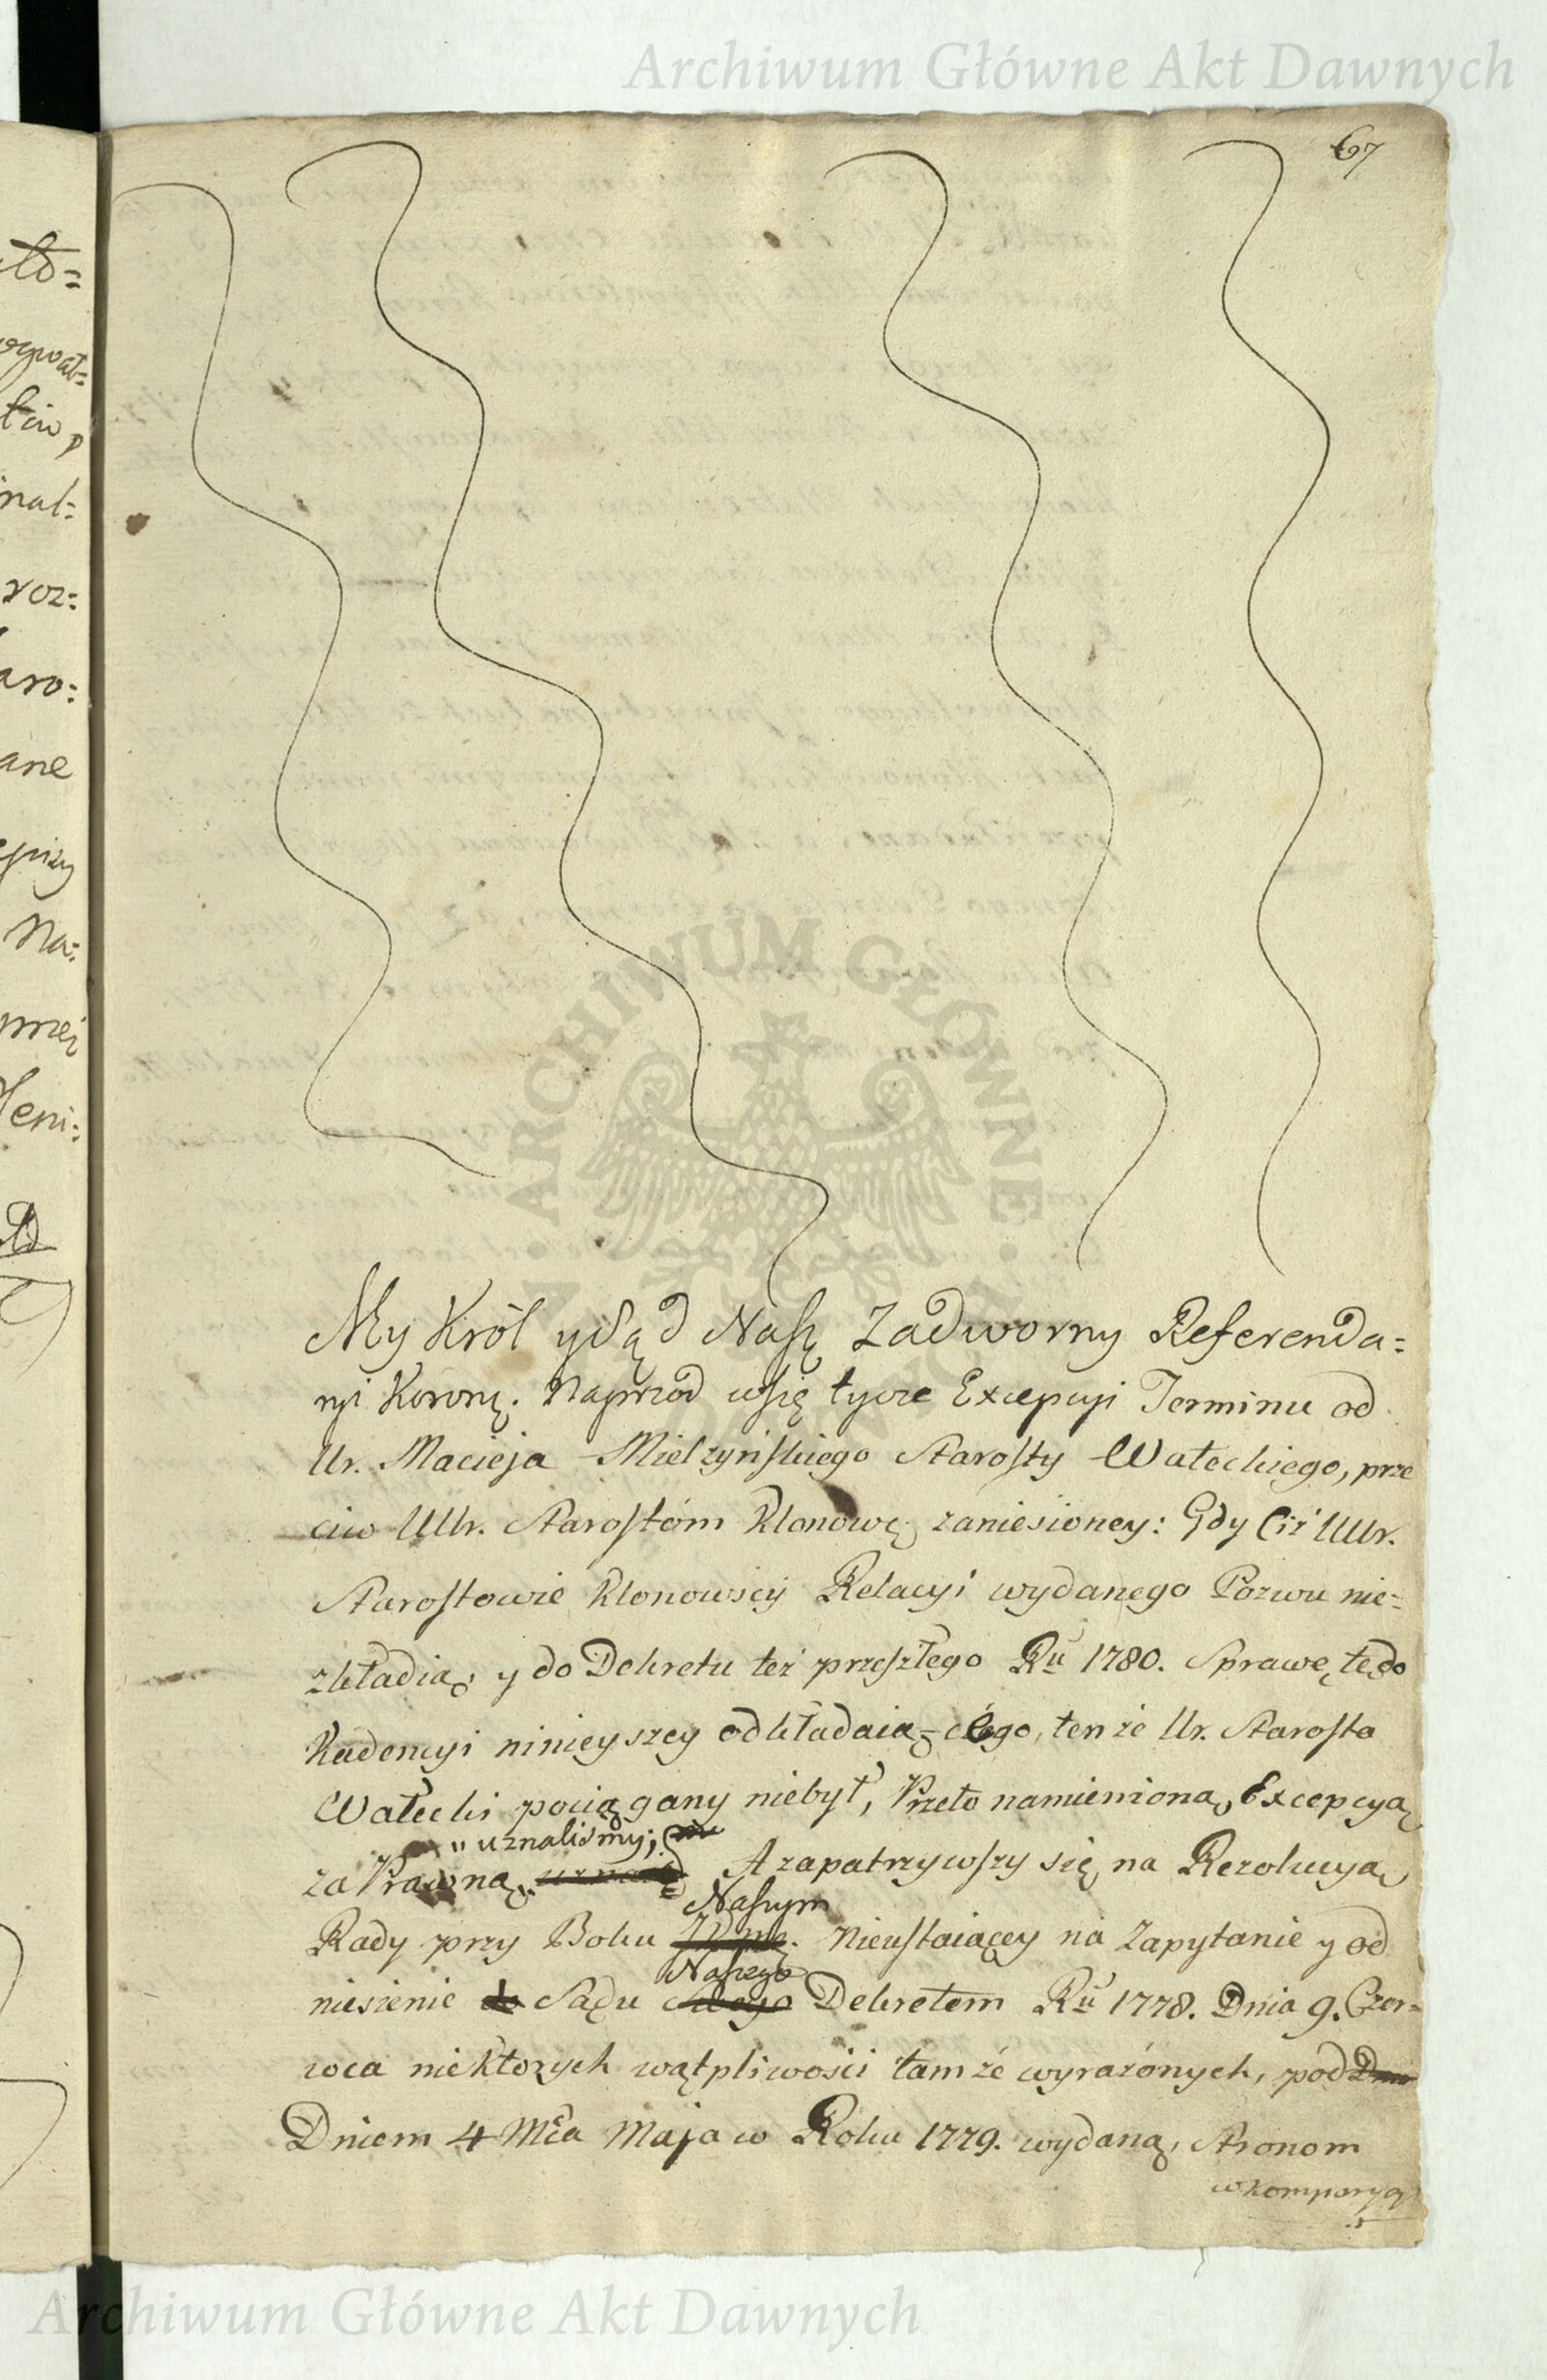 Archiwum Główne Akt Dawnych
67
My Król y Sąd Nasz Zadworny Referenda=
ryi Koronnę. Naprzod co się tycze Excepcyi Terminu od
Ur. Macieja Mielzyńskiego Starosty Wałeckiego, prze
ciw UUr. Starostóm Klonowę. zaniesioney: Gdy Ciż UUr.
Starostowie Klonowscy Relacyi wydanego Pozwu nie=
zkładią, y do Dekretu też przeszłego Rű 1780. Sprawę tę do
Kadencyi ninieyszey odkładaią=cego, tenże Ur. Starosta
Wałecki pociągany niebył, Przeto namienioną Excepcyą
" uznaliśmy;
za Prawną, A zapatrzywszy się na Rezolucyą
Naszym
Rady przy Boku Nieustaiącey na Zapytanie y od
Naszego
niesienie do Sądu Swego Dekretem Rű 1778. Dnia 9. Czer=
wca niektorych wątpliwości tamże wyrażonych, pod Dni
Dniem 4 Mca Maja w Roku 1779. wydaną, Stronom
w komparycyą
to=
nal=
roz:
aro:
ane
Na:
ARCHIWUM GŁÓWNE AKT DAWNYCH
Archiwum Główne Akt Dawnych